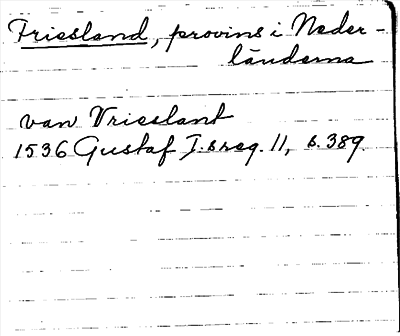 Friesland, provins i Neder-
länderna
van Vrieslant
1536 Gustaf I:s reg. 11, s. 389.